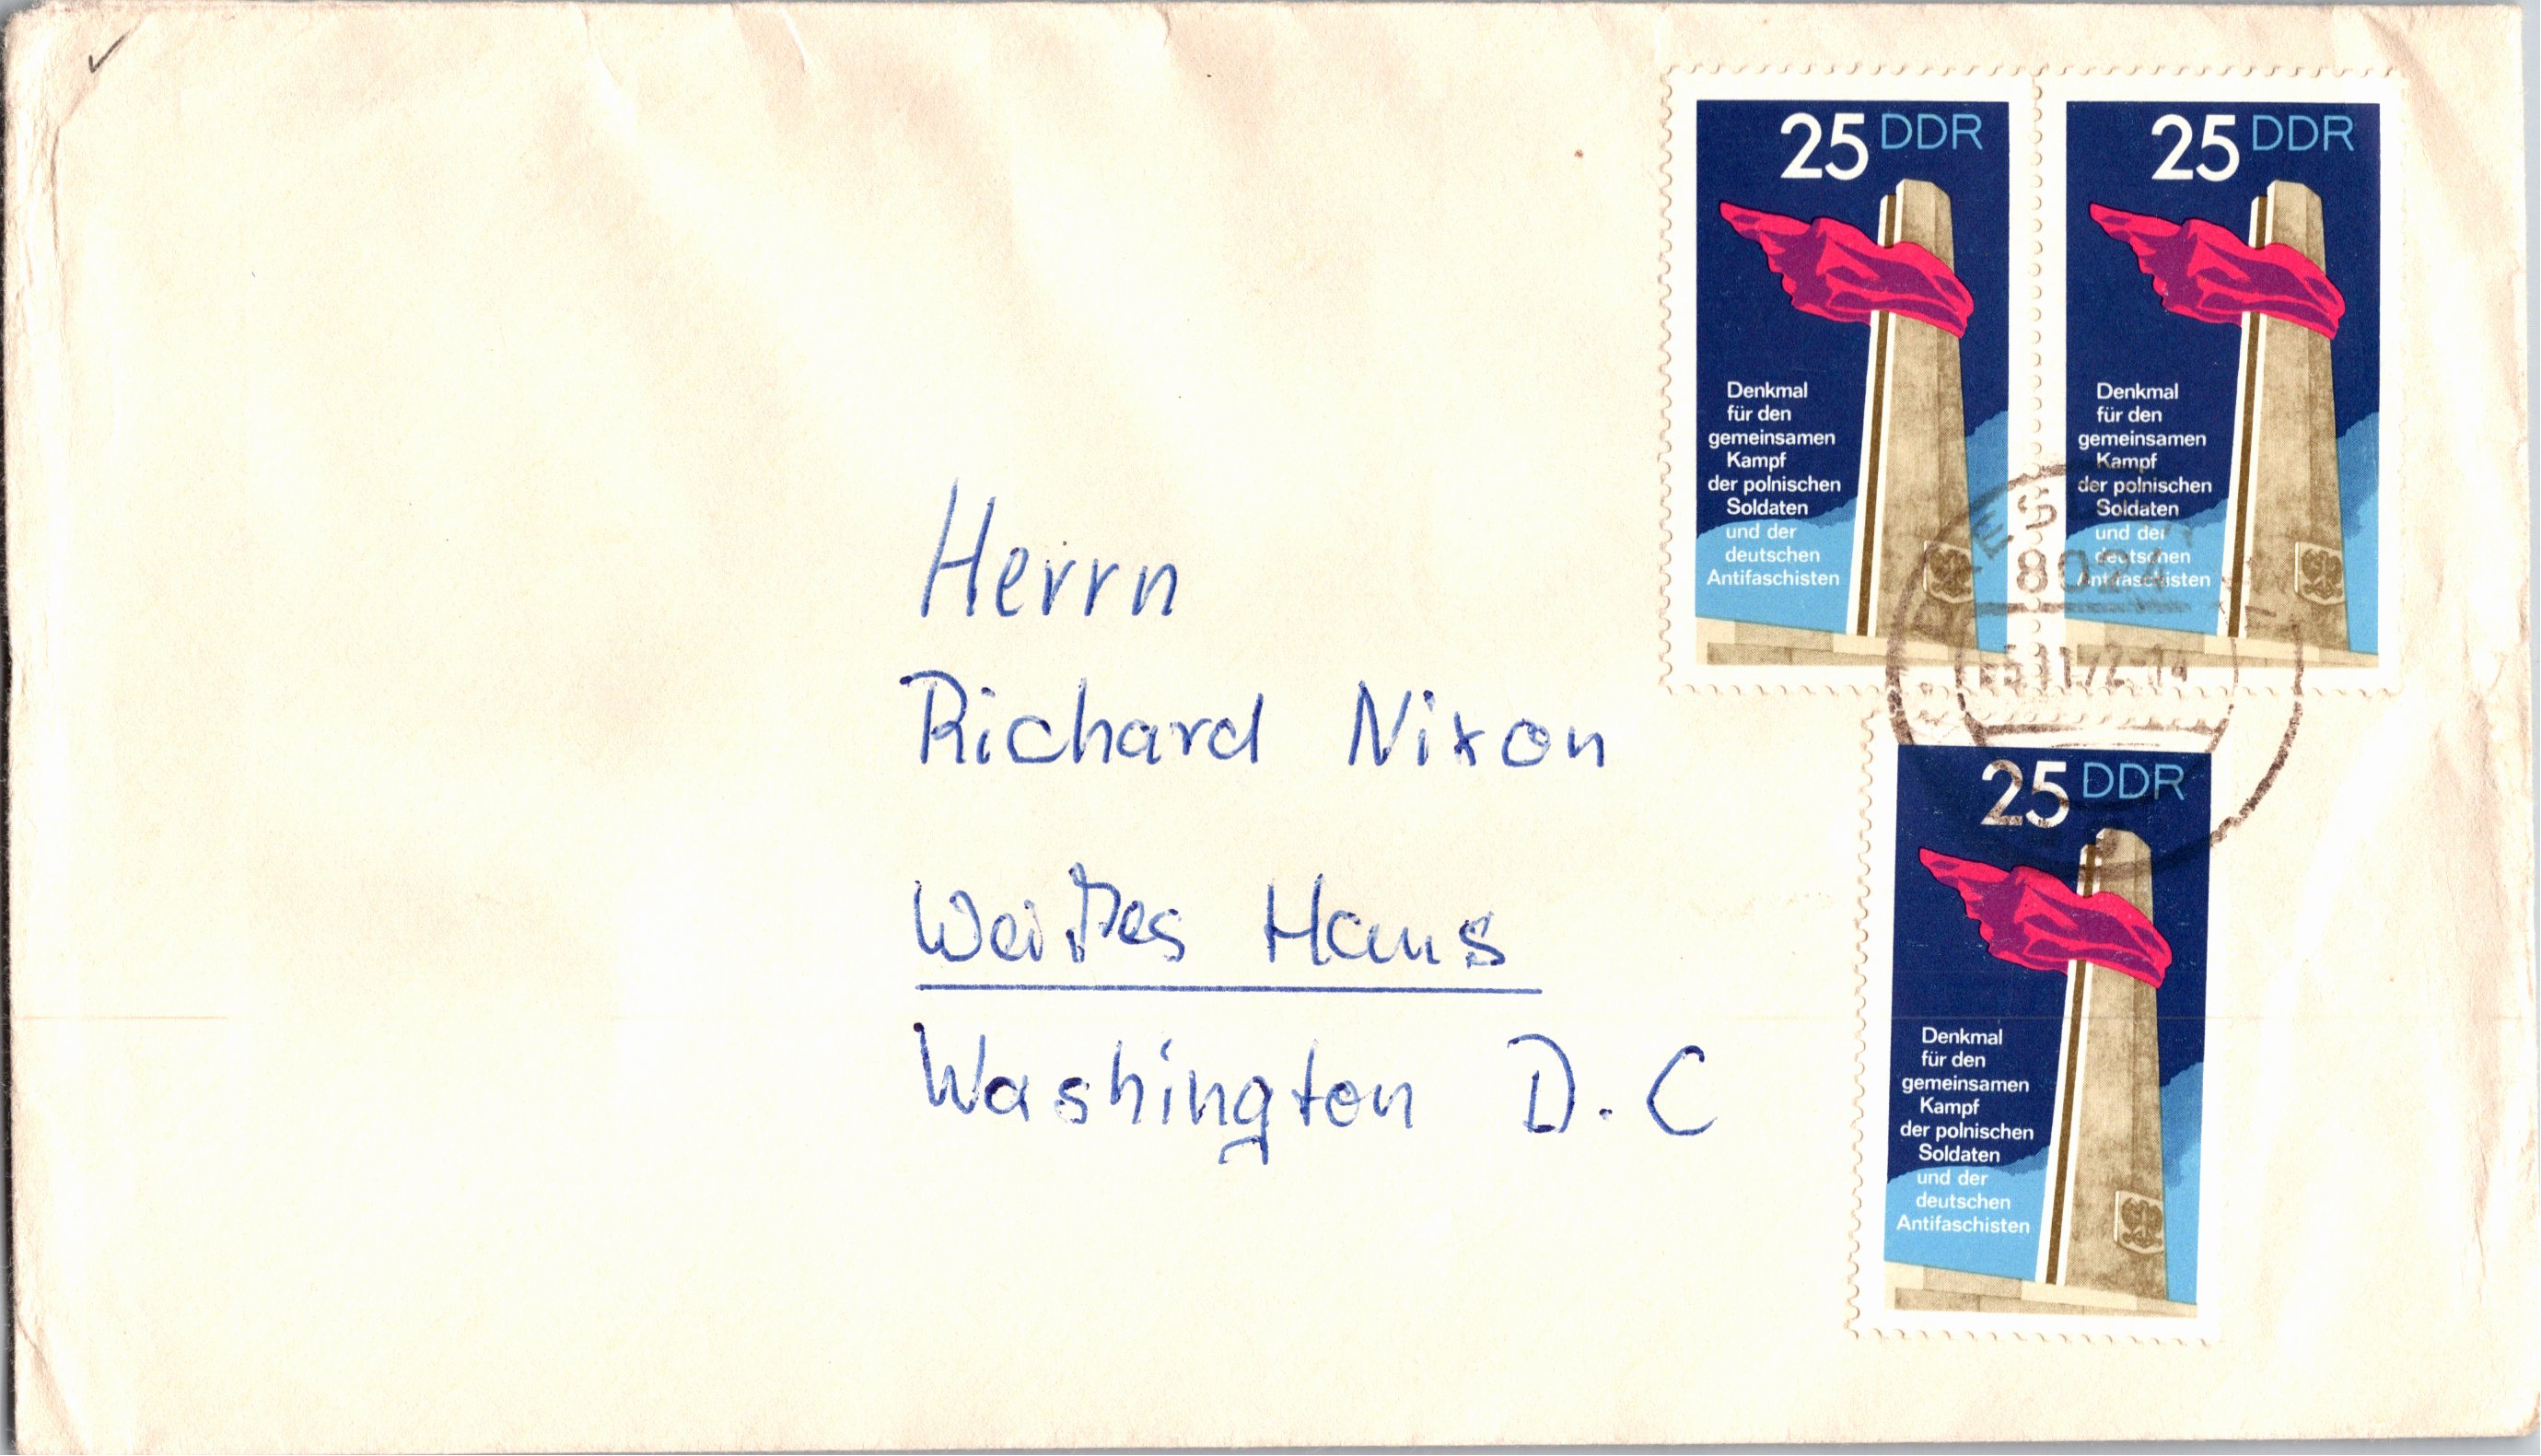 25 DDR
Denkmal
für den
gemeinsamen
Kampf
der polnischen
Soldaten
und der
deutschen
Antifaschisten
25 DDR
Denkmal
für den
gemeinsamen
Kampf
der polnischen
Soldaten
und der
deutschen
Antifaschisten
8024
Herrn
Richard Nixon
Weißes Haus
Washington D.C
25 DDR
Denkmal
für den
gemeinsamen
Kampf
der polnischen
Soldaten
und der
deutschen
Antifaschisten